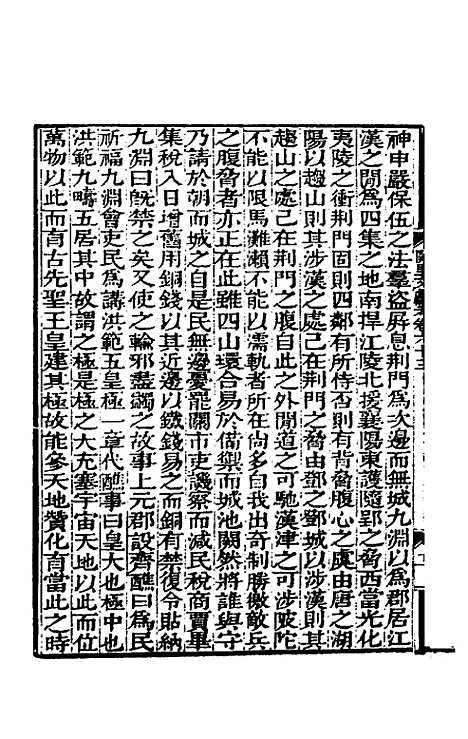 神申嚴保伍之法羣盜屏息荆門爲次邊而無城九淵以爲郡居江
漢之閒爲四集之地南捍江陵北援襄陽東護隨郢之脅西當光化
夷陵之衝荆門固則四鄰有所恃否則有背脅腹心之虞由唐之湖
陽以趨山則其涉漢之處己在荆門之脅由鄧之鄧城以涉漢則其
趨山之處己在荆門之腹自此之外閒道之可馳漢津之可涉陂陀
不能以限馬灘瀨不能以濡軌者所在尙多自我出奇制勝徼敵兵
之腹脅者亦正在此雖四山環合易於備禦而城池闕然將誰與守
乃請於朝而城之自是民無邊憂罷關市吏譏察而减民稅商賈畢
集稅入日增舊用銅錢以其近邊以鐵錢易之而銅有禁復令貼納
九淵曰旣禁之矣又使之輸邪盡蠲之故事上元郡設齊醮曰爲民
祈福九淵會吏民爲講洪範五皇極一章代醮事曰皇大也極中也
洪範九疇五居其中故謂之極是極之大充塞宇宙天地以此而位
萬物以此而育古先聖王皇建其極故能參天地贊化育當此之時